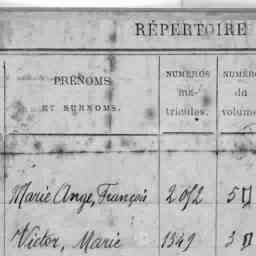 RÉPERTOIRE
PRÉNOMS
ET SURNOMS.
NUMÉROS
ma-
tricules.
NUMÉRO
du
volume
Marie Ange, François 2072 5
Victor, Marie 1349 3